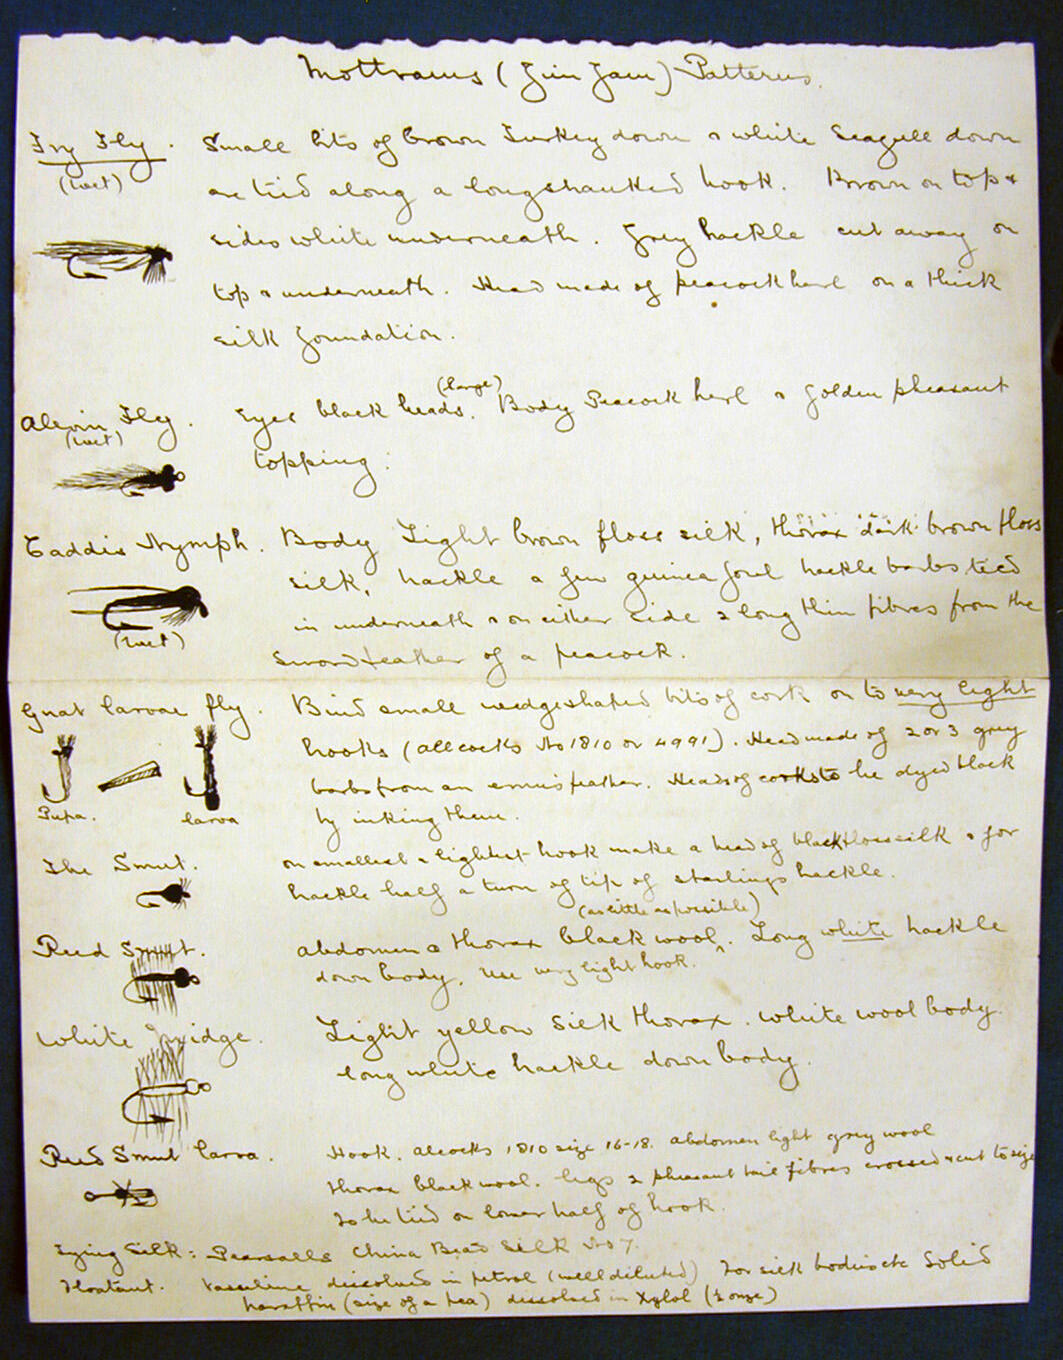 Mottrams (Jim Jam) Patterns.
Fry Fly. Small bits of brown Turkey down & white Seagull down
(wet) are tied along a longshanked hook. Brown on top &
sides white underneath. Grey hackle cut away on
top & underneath. Head made of peacock herl on a thick
silk foundation.
(large)
Alevin Fly. Eyes black beads. Body Peacock herl & golden pheasant
(wet) topping.
Caddis Nymph. Body Light brown floss silk, thorax dark brown floss
silk, hackle a few guinea fowl hackle barbs tied
in underneath & on either side 2 long thin fibres from the
(wet) sword feather of a peacock.
Gnat larvae fly. Bind small wedgeshaped bits of cork on to very light
hooks (allcocks No 1810 or 4991). Head made of 2 or 3 grey
barbs from an feather. Heads of corks to be dyed black
Pupa. larva by inking them.
The Smut. on smallest & lightest hook make a head of black floss silk & for
hackle half a turn of tip of starlings hackle.
(as little as possible)
Reed Smut. abdomen & thorax black wool. Long white hackle
down body. Use very light hook.
White Midge. Light yellow silk thorax. White wool body.
long white hackle down body.
Reed Smut larva. Hook. alcocks 1810 size 16-18. abdomen light grey wool
thorax black wool. legs 2 pheasant tail fibres crossed & cut to size
to be tied on lower half of hook.
Tying Silk: Pearsalls China Bead Silk No 7.
Floatant. Vasseline dissolved in petrol (well diluted) For silk bodies etc Solid
paraffin (size of a pea) dissolved in Xylol (½ ounce)